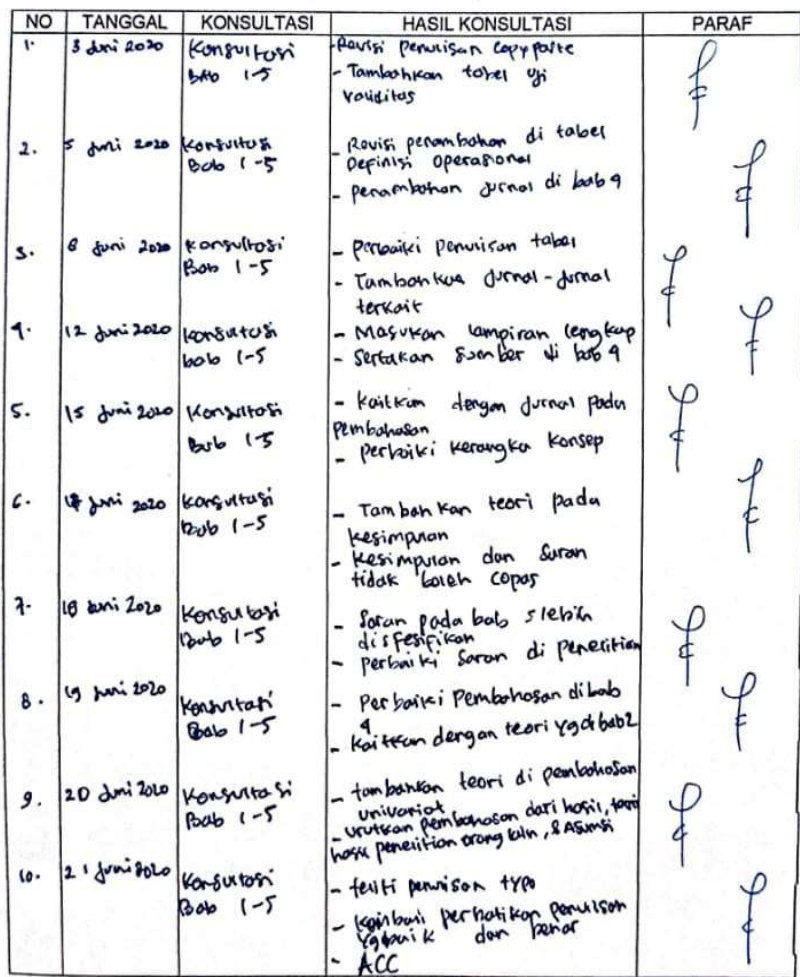 NO TANGGAL KONSULTASI HASIL KONSULTASI PARAF
1. 3 Juni 2020 Konsultasi -Revisi penulisan copy paste
Bab 1-5 - Tambahkan tabel uji
validitas
2. 5 Juni 2020 Konsultasi - Revisi penambahan di tabel
Bab 1-5 Definisi operasional
- penambahan jurnal di bab 4
3. 8 Juni 2020 Konsultasi - Perbaiki penulisan tabel
Bab 1-5 - Tambahkan jurnal-jurnal
terkait
4. 12 Juni 2020 konsultasi - Masukan lampiran lengkap
bab 1-5 - Sertakan sumber di bab 4
5. 15 Juni 2020 Konsultasi - kaitkan dengan jurnal pada
Bab 1-5 pembahasan
- perbaiki kerangka konsep
6. Juni 2020 Konsultasi - Tambahkan teori pada
Bab 1-5 kesimpulan
- kesimpulan dan saran
tidak boleh copas
7. 18 Juni 2020 Konsultasi - Saran pada bab 5 lebih
Bab 1-5 disfesifikan
- perbaiki saran di penelitian
8. 19 Juni 2020 Konsultasi - Perbaiki Pembahasan di bab
Bab 1-5 4
- kaitkan dengan teori yg di bab 2
9. 20 Juni 2020 Konsultasi - tambahkan teori di pembahasan
Bab 1-5 univariat
- urutkan pembahasan dari hasil, teori
hasil penelitian orang lain, & Asumsi
10. 21 Juni 2020 Konsultasi - teliti penulisan typo
Bab 1-5 - kembali perhatikan penulisan
yg baik dan benar
- ACC